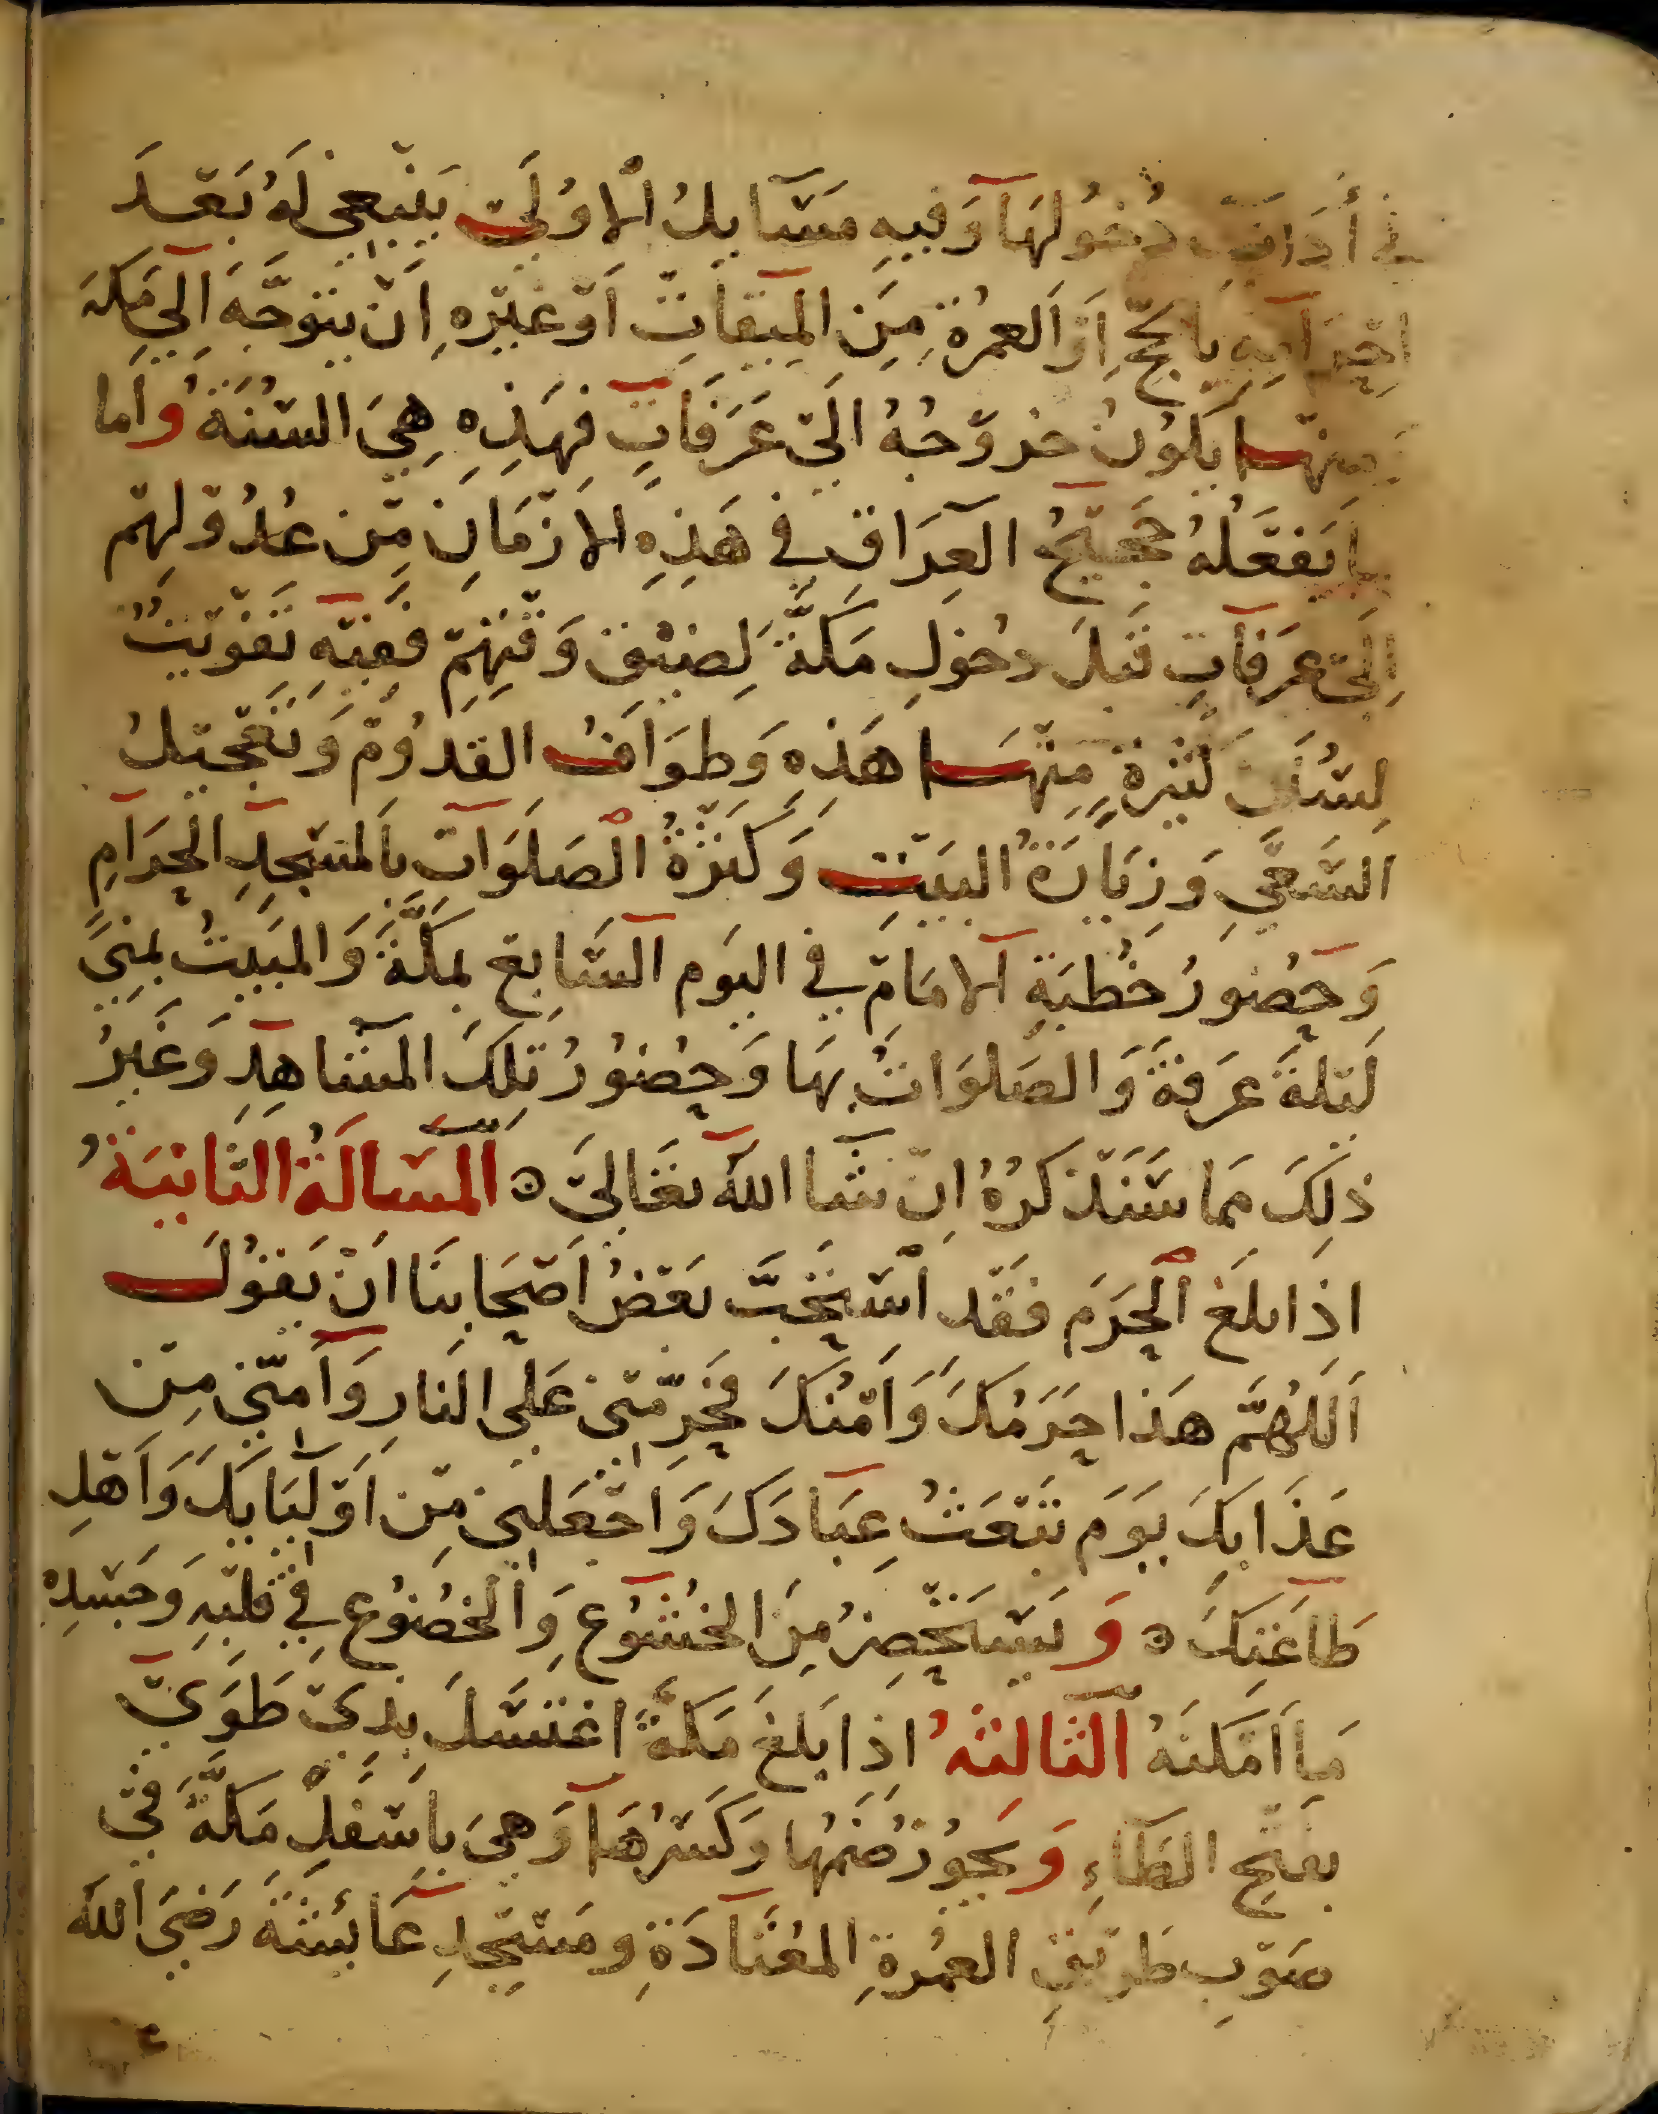 في أداب دخولها وفيه مسايل الاولى ينبغي له بعد
احرامه بالحج او العمرة من الميقات او غيره ان يتوجه الى مكة
ومنها يكون خروجه الى عرفات فهذه هي السنة واما
ما يفعله حجيج العراق في هذه الازمان من عدولهم
الى عرفات قبل دخول مكة لضيق وقتهم ففيه تفويت
لسنن كثيرة منها هذه وطواف القدوم وتعجيل
السعي وزيارة البيت وكثرة الصلوات بالمسجد الحرام
وحضور خطبة الامام في اليوم السابع بمكة والمبيت بمنى
ليلة عرفة والصلوات بها وحضور تلك المشاهد وغير
ذلك مما سنذكره ان شا الله تعالى ه المسالة الثانية
اذا بلغ الحرم فقد استحب بعض اصحابنا ان يقول
اللهم هذا حرمك وامنك فحرمني على النار وآمني من
عذابك يوم تبعث عبادك واجعلني من اوليايك واهل
طاعتك ه ويستحضر من الخشوع والخضوع في قلبه وجسده
ما امكنه الثالثه اذا بلغ مكة اغتسل بذي طوى
بفتح الطاء ويجوز ضمها وكسرها وهي باسفل مكة في
صوب طريق العمرة المعتادة ومسجد عائشة رضي الله